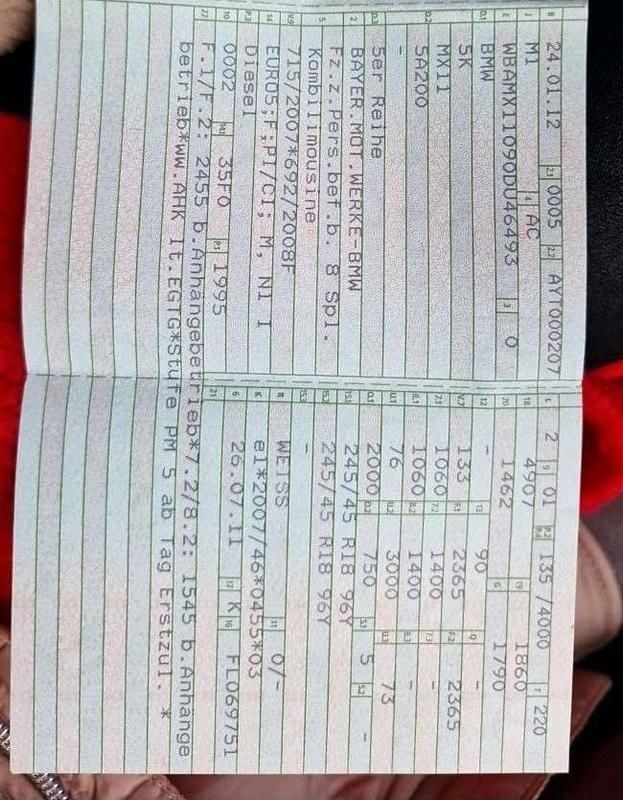 B 24.01.12 2.1 0005 2.2 AYT000207
J M1 4 AC
E WBAMX11090DU46493 3 0
D.1 BMW
5K
D.2 MX11
5A200
-
D.3 5er Reihe
2 BAYER.MOT.WERKE-BMW
5 Fz.z.Pers.bef.b. 8 Spl.
Kombilimousine
V.9 715/2007*692/2008F
14 EURO5;F;PI/CI; M, N1 I
P.3 Diesel
10 0002 14.1 35F0 P.1 1995
L 2 9 01 P.2 P.4 135 /4000 T 220
18 4907 19 1860
20 1462 G 1790
12 - 13 90 Q -
V.7 133 F.1 2365 F.2 2365
7.1 1060 7.2 1400 7.3 -
8.1 1060 8.2 1400 8.3 -
U.1 76 U.2 3000 U.3 73
O.1 2000 O.2 750 S.1 5 S.2 -
15.1 245/45 R18 96Y
15.2 245/45 R18 96Y
15.3 -
R WEISS 11 0/-
K e1*2007/46*0455*03
6 26.07.11 17 K 16 FL069751
21
22 F.1/F.2: 2455 b.Anhängebetrieb*7.2/8.2: 1545 b.Anhänge
betrieb*ww.AHK lt.EGTG*Stufe PM 5 ab Tag Erstzul. *